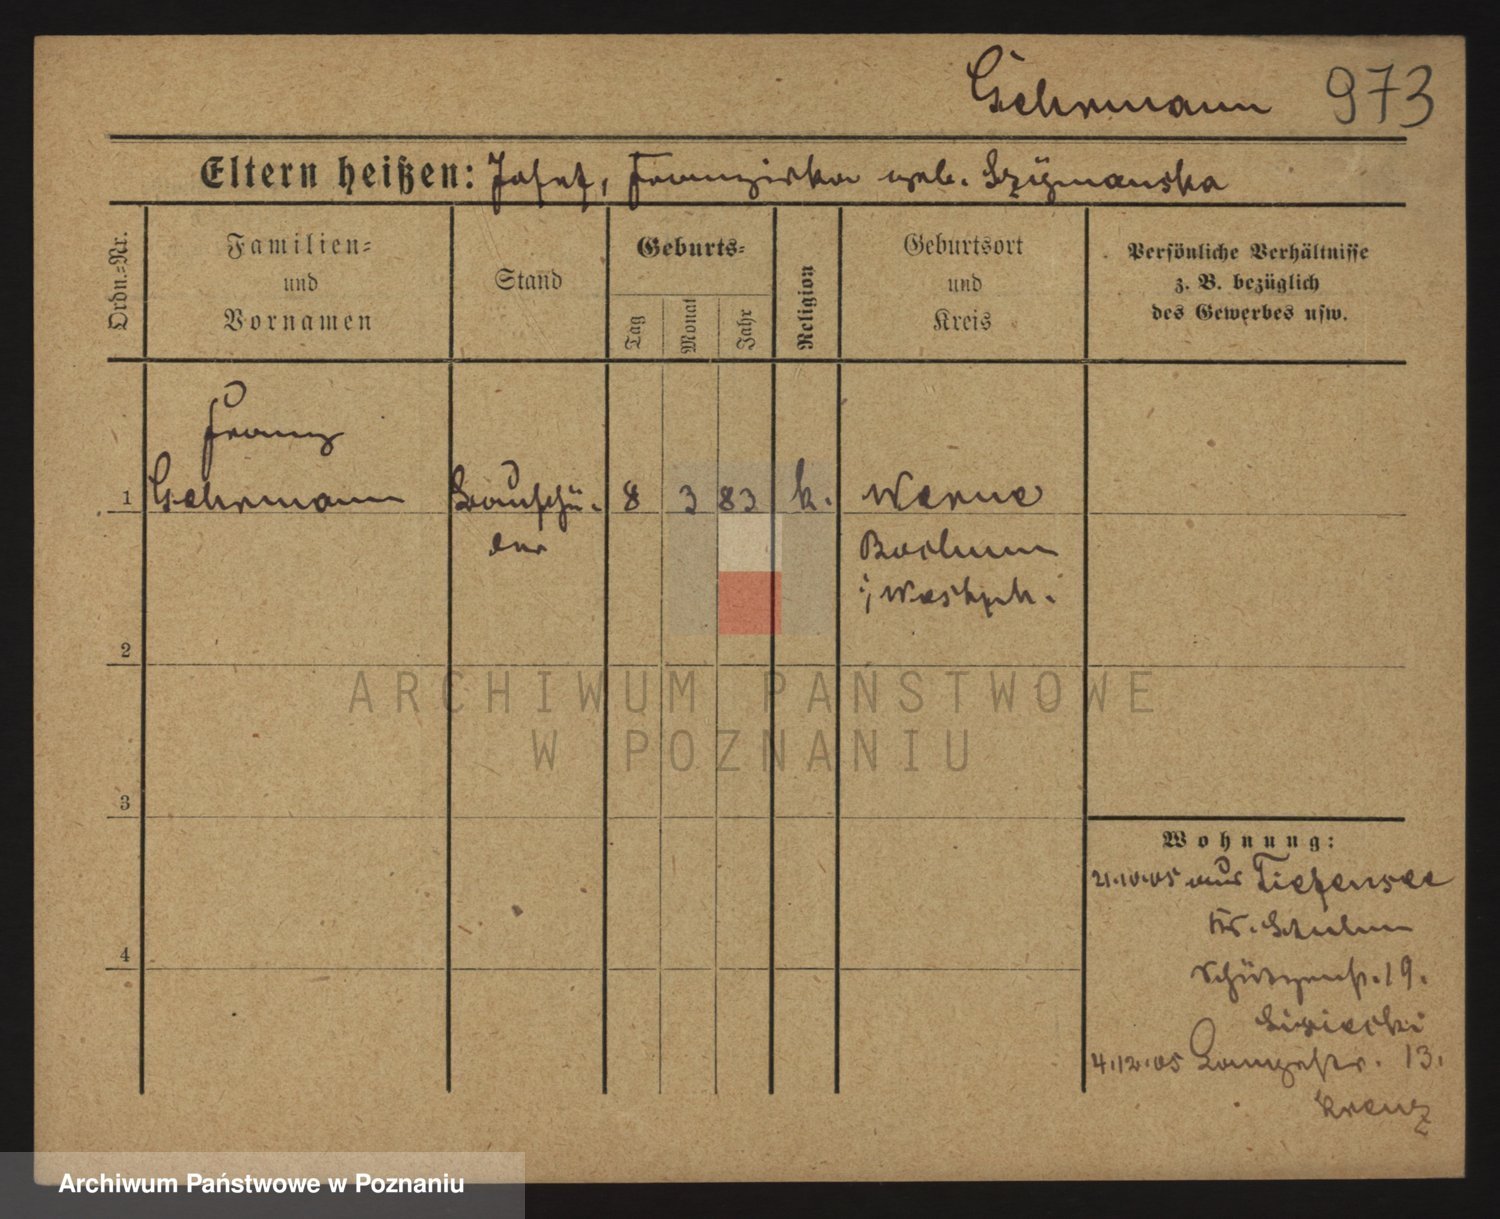 Gehrmann 973
Eltern heißen: Josef, Franziska geb. Szymanska
Ordn.=Nr.
Familien=
und
Vornamen
Stand
Geburts=
Tag
Monat
Jahr
Religion
Geburtsort
und
Kreis
Persönliche Verhältnisse
z. B. bezüglich
des Gewerbes usw.
Franz
1 Gehrmann Bauschü- 8 3 83 k. Werne
ler Bochum
i/ Westph.
2
3
4
Wohnung:
21.10.05 aus Tiefensee
Kr. Stuhm
Schützenstr. 19.
4.12.05 Langestr. 13.
Krenz
ARCHIWUM PAŃSTWOWE
W POZNANIU
Archiwum Państwowe w Poznaniu